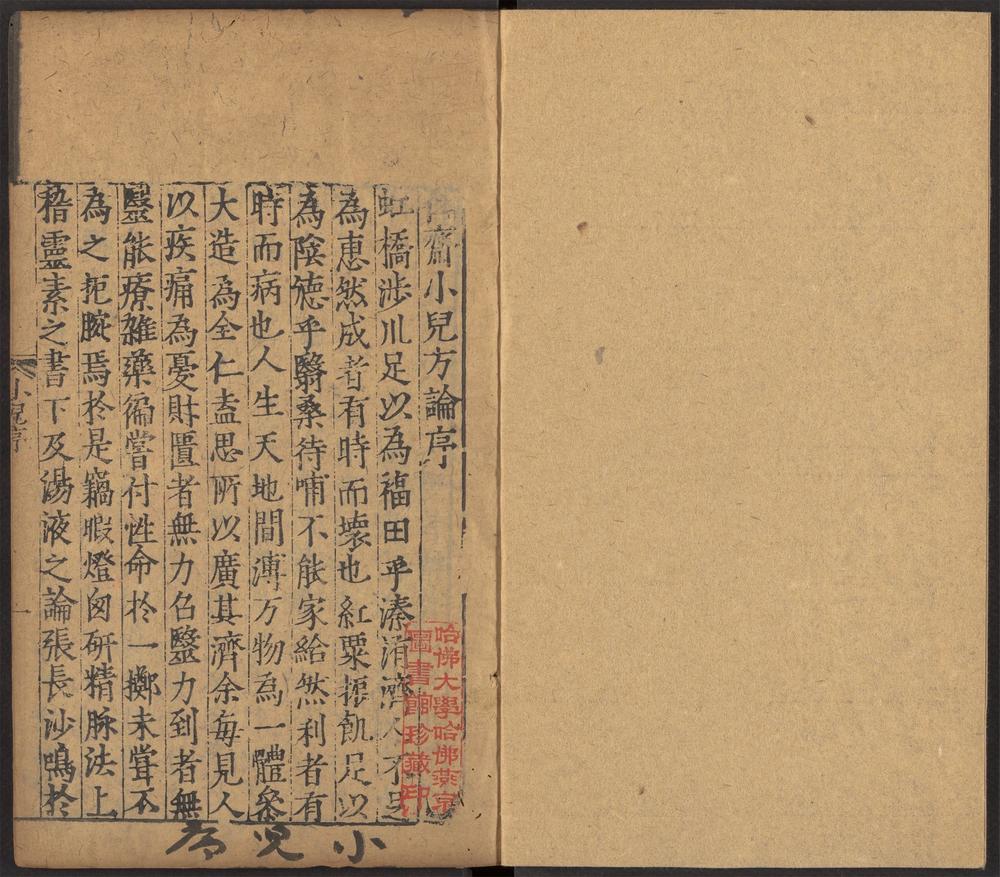 齋小兒方論序
虹橋涉川足以為福田乎溱洧濟人不足
為惠然成者有時而壞也紅粟振飢足以
為陰德乎翳桑待哺不能家給然利者有
時而病也人生天地間溥万物為一體叅
大造為全仁盍思所以廣其濟余每見人
以疾痛為憂財匱者無力召醫力到者無
醫能療雜藥徧嘗付性命於一擲未甞不
為之扼腕焉於是竊暇燈囱研精脉法上
稽靈素之書下及湯液之論張長沙鳴於
小児序
一
哈佛大學哈佛燕京
圖書館珍藏印
小児